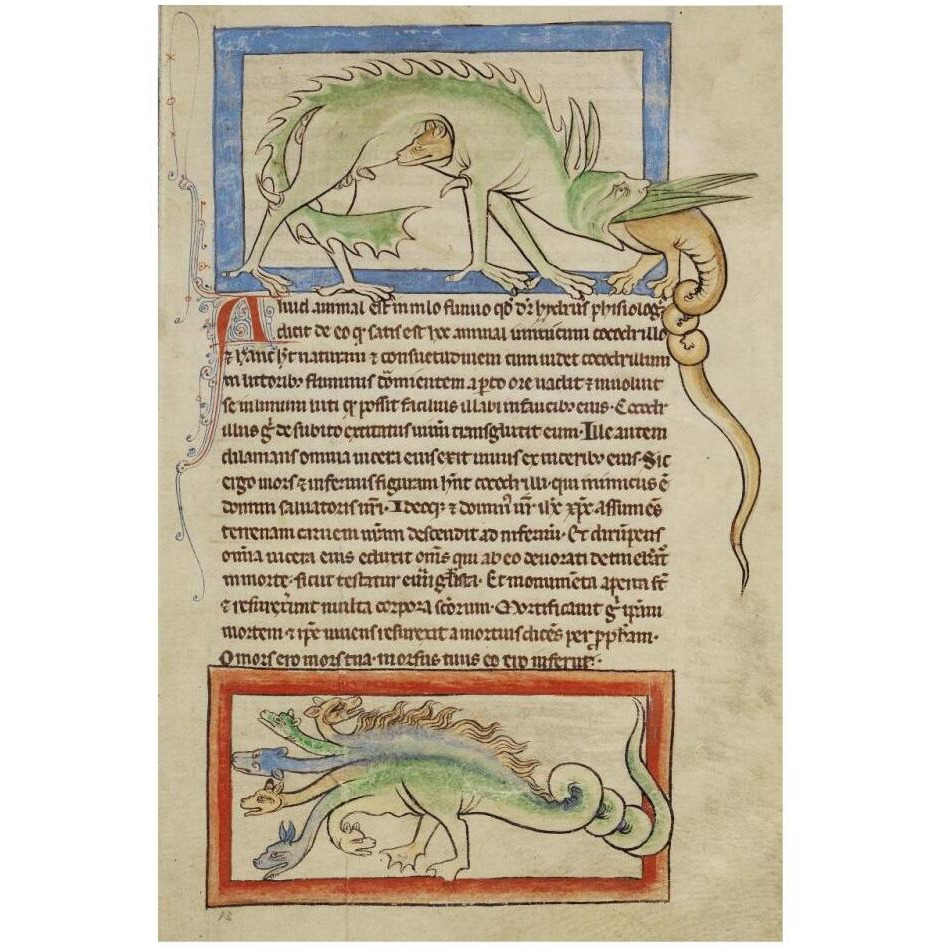 Aliud animal est in nilo fluuio qd̄ dr̄ hydrus phisiologꝰ
dicit de eo qͥ satis est hoc animal inimicum cocodrillo
⁊ hanc hꝫt naturam ⁊ consuetudinem cum uidet cocodrillum
in littoribꝫ fluminis dormientem aꝑto ore uadit ⁊ inuoluit
se in limum luti qͦ possit facilius illabi in faucibꝫ eius. Cocodr
illus gͥ de subito excitatus uiuum transglutit eum. Ille autem
dilanians omnia uiscera eius exit uiuus ex uisceribꝫ eius. Sic
ergo mors ⁊ infernus figuram hn̄t cocodrilli. qui inimicus ē
domini saluatoris nr̄i. Ideoqꝫ ⁊ dominꝰ nr̄ ih̄c xp̄c assumēs
terrenam carnem nr̄am descendit ad infernū. Et dirūpens
om̄ia uiscera eius eduxit om̄s qui ab eo deuorati detinebant̄
in morte. sicut testatur euu̅gl̅ista. Et monumēta aperta st̄
⁊ resurrexerunt multa corpora sc̄orum. Mortificauit gͥ ip̄am
mortem. ⁊ ip̄e uiuens resurexit a mortuis dicēs per ꝓph̄am.
O mors ero mors tua. morsus tuus ero inferne.